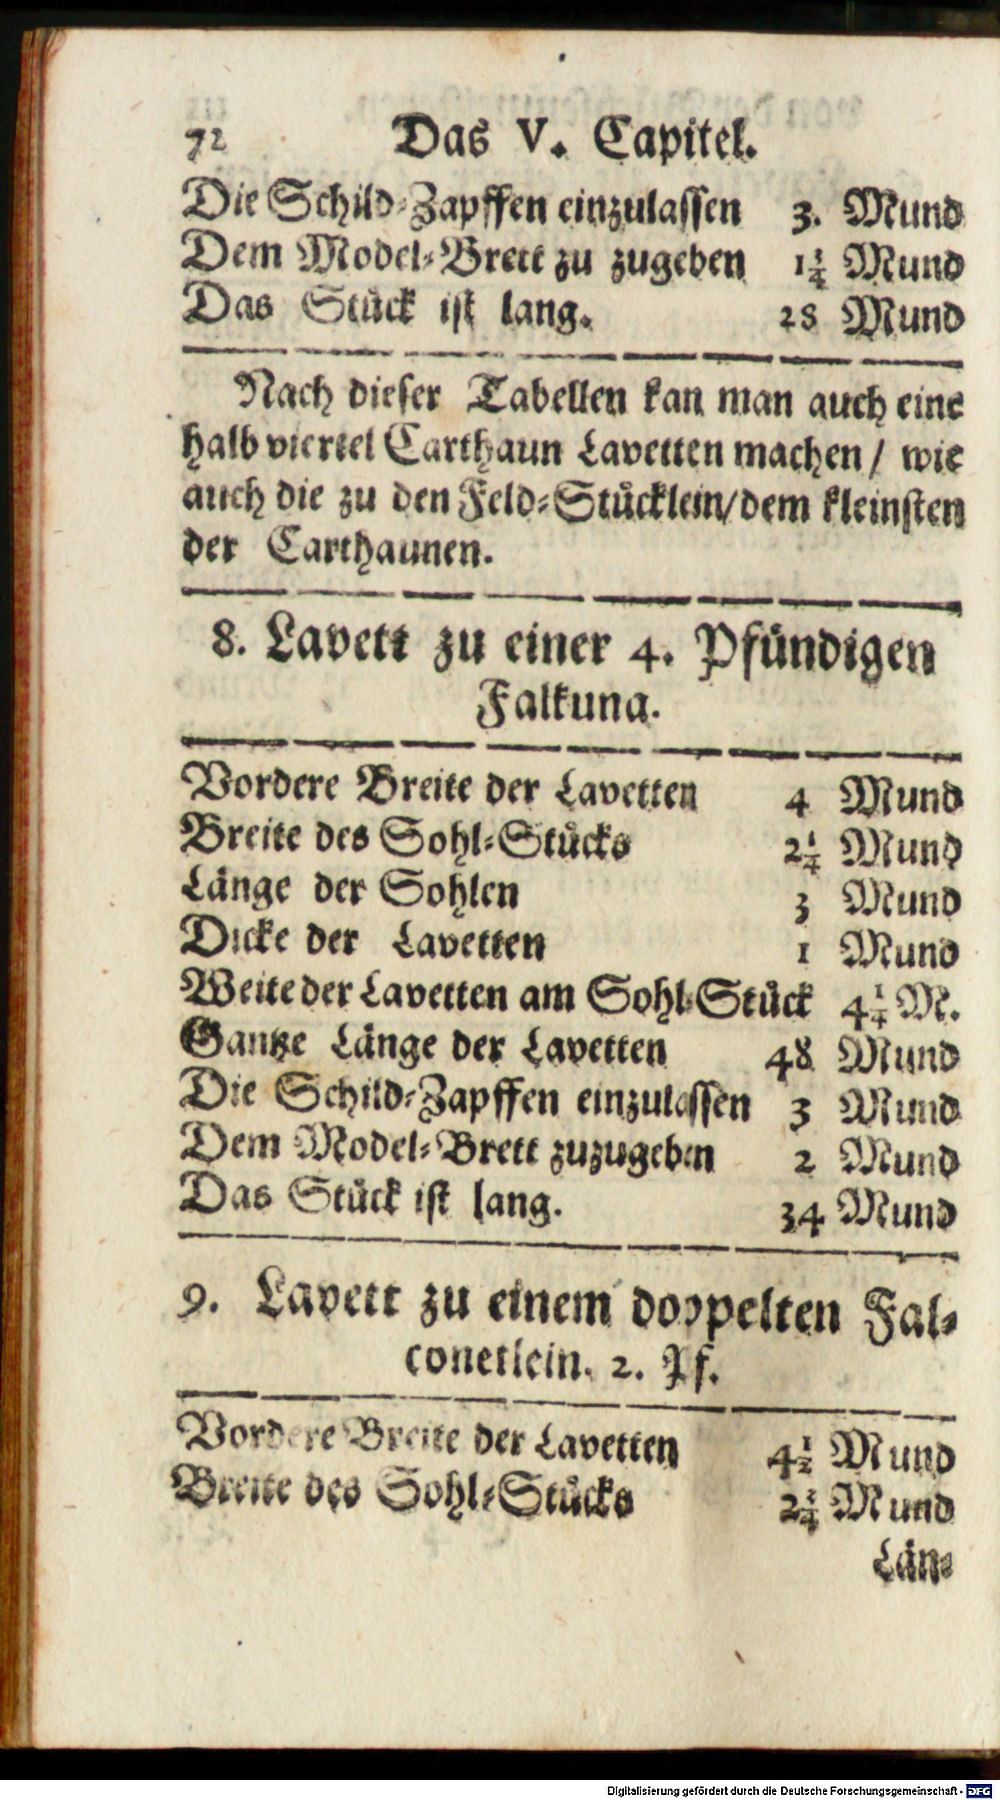 72 Das V. Capitel.
Die Schild-Zapffen einzulassen 3. Mund
Dem Model-Brett zu zugeben 1¾ Mund
Das Stück ist lang. 28 Mund
Nach dieser Tabellen kan man auch eine
halb viertel Carthaun Lavetten machen / wie
auch die zu den Feld-Stücklein/dem kleinsten
der Carthaunen.
8. Lavett zu einer 4. Pfündigen
Falkuna.
Vordere Breite der Lavetten 4 Mund
Breite des Sohl-Stücks 2¼ Mund
Länge der Sohlen 3 Mund
Dicke der Lavetten 1 Mund
Weite der Lavetten am Sohl-Stück 4¼ M.
Gantze Länge der Lavetten 48 Mund
Die Schild-Zapffen einzulassen 3 Mund
Dem Model-Brett zuzugeben 2 Mund
Das Stück ist lang. 34 Mund
9. Lavett zu einem doppelten Fal-
conetlein. 2. Pf.
Vordere Breite der Lavetten 4½ Mund
Breite des Sohl-Stücks 2¾ Mund
Län-
Digitalisierung gefördert durch die Deutsche Forschungsgemeinschaft - DFG